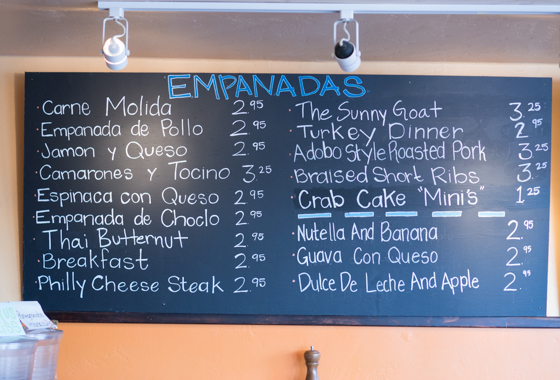 EMPANADAS
· Carne Molida 2.95
· Empanada de Pollo 2.95
· Jamon y Queso 2.95
· Camarones y Tocino 3.25
· Espinaca con Queso 2.95
· Empanada de Choclo 2.95
· Thai Butternut 2.95
· Breakfast 2.95
· Philly Cheese Steak 2.95
· The Sunny Goat 3.25
· Turkey Dinner 2.95
· Adobo Style Roasted Pork 3.25
· Braised Short Ribs 3.25
· Crab Cake "Mini's" 1.25
· Nutella And Banana 2.95
· Guava Con Queso 2.95
· Dulce De Leche And Apple 2.95